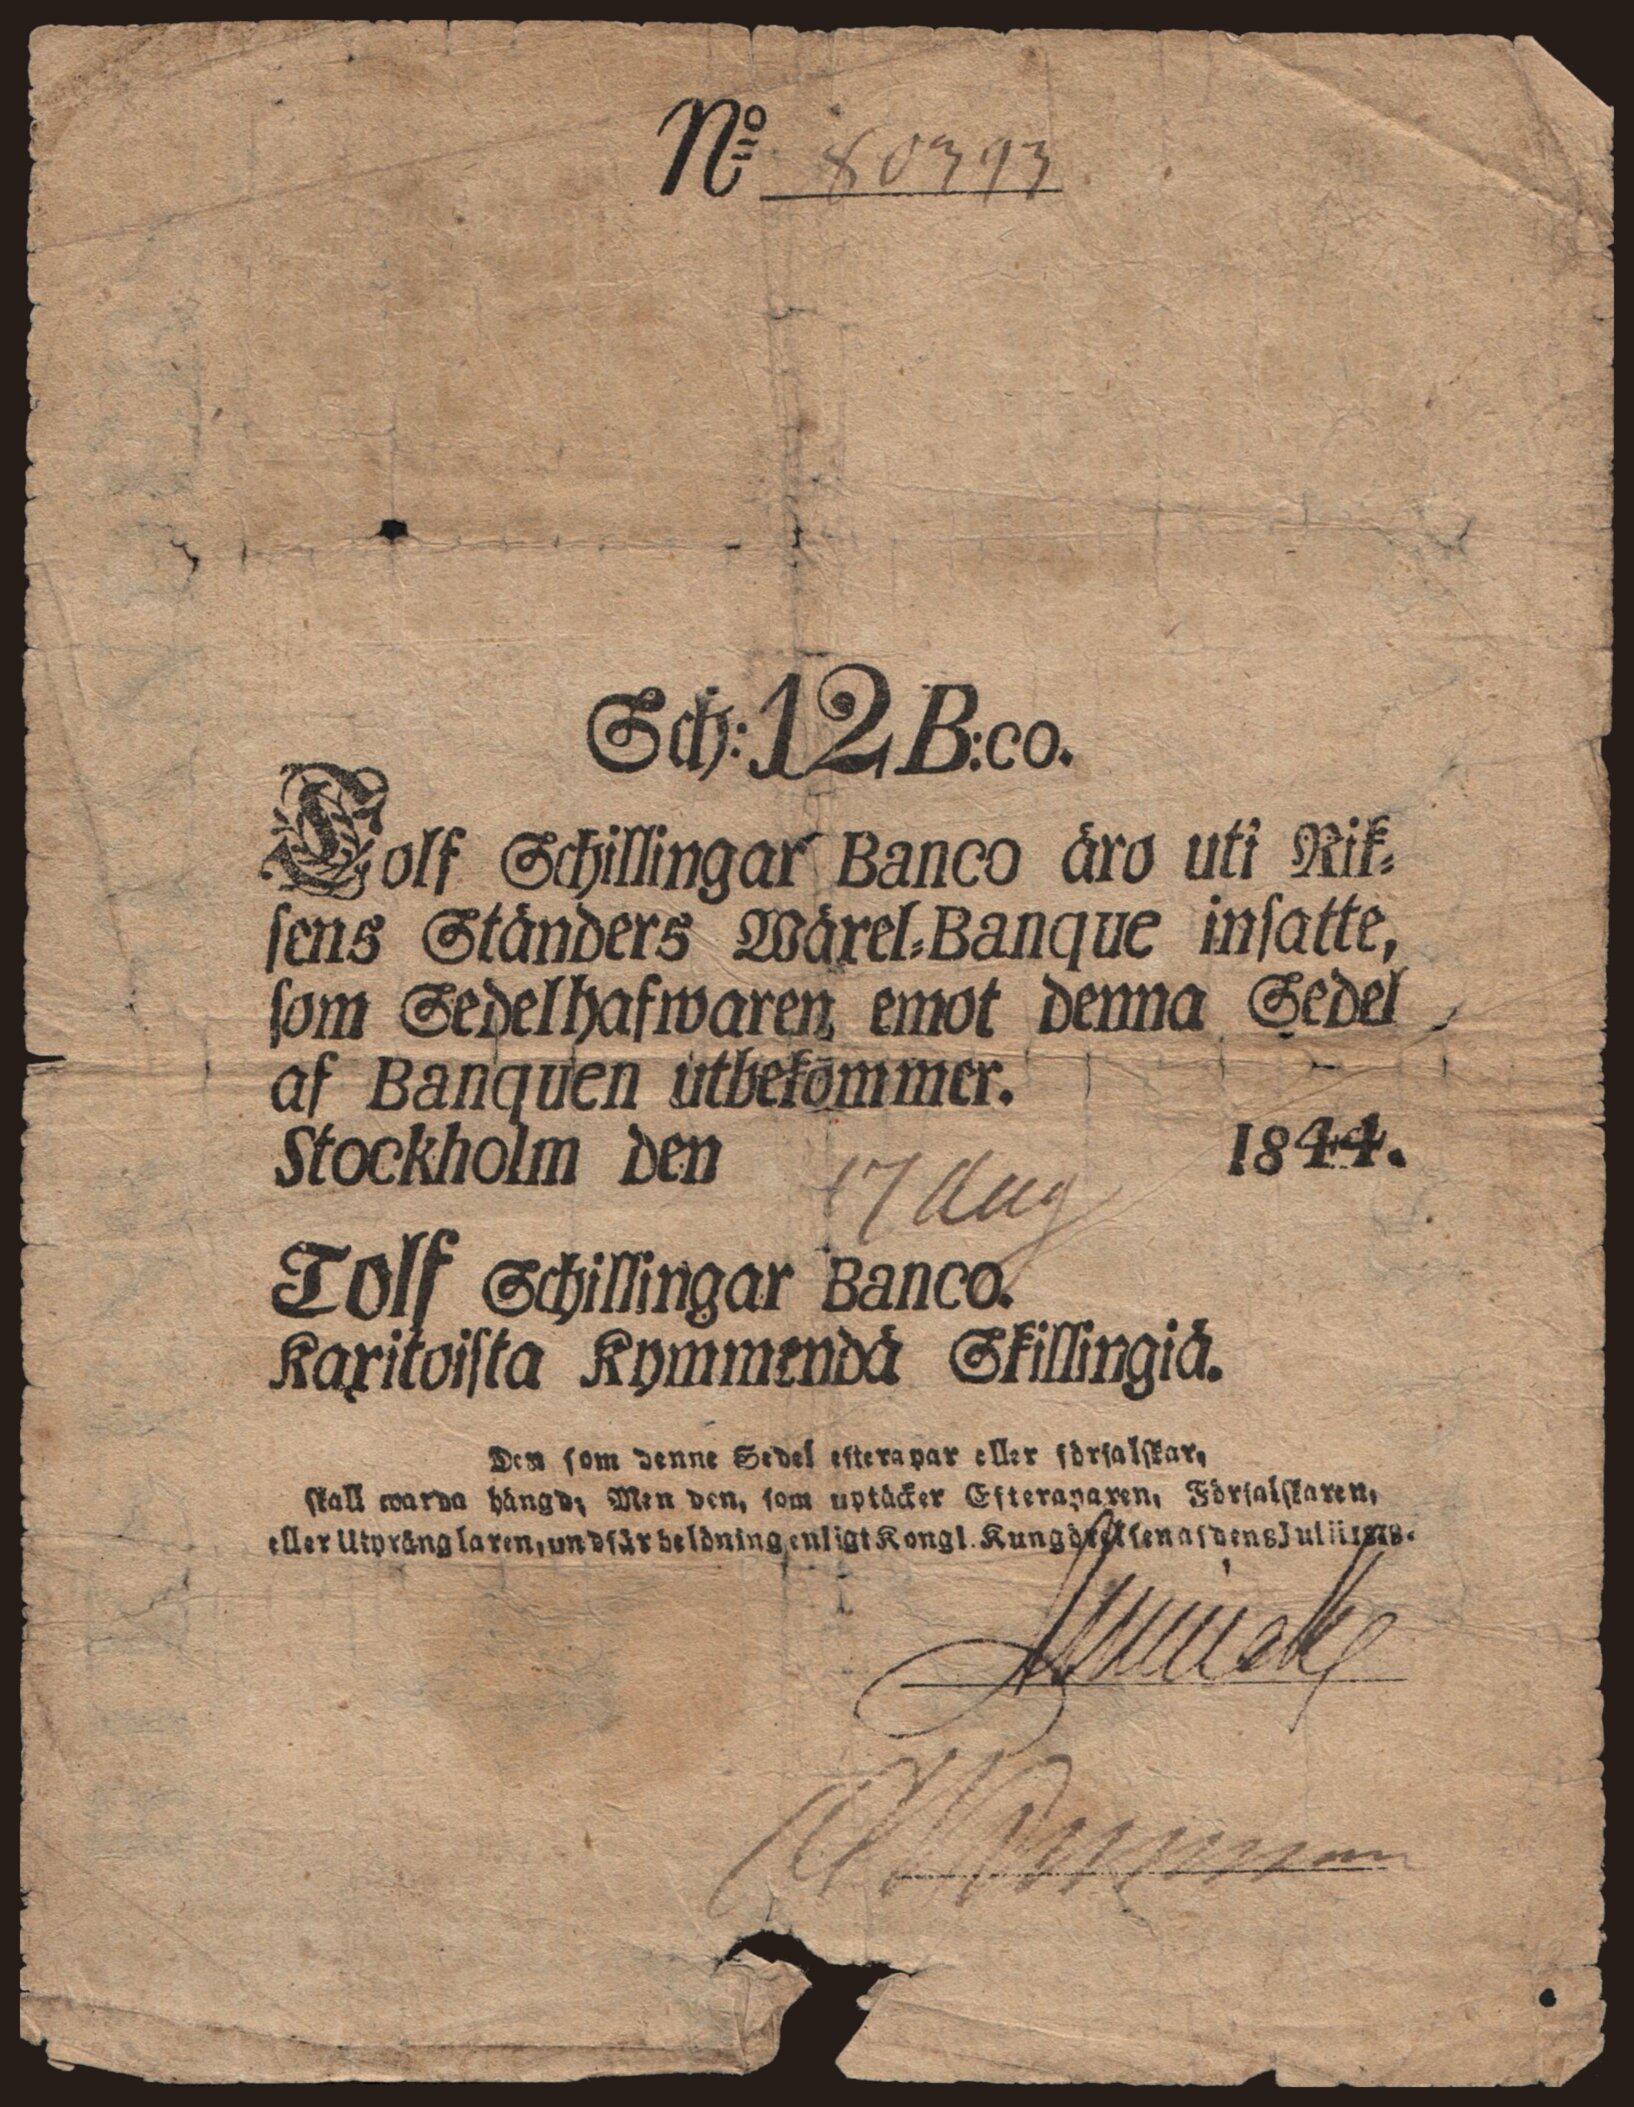 No 80393
Sch: 12 B:co.
Tolf Schillingar Banco äro uti Rik-
sens Ständers Wäxel-Banque insatte,
som Sedelhafwaren emot denna Sedel
af Banquen utbekommer.
Stockholm den 17 Aug 1844.
Tolf Schillingar Banco.
Karitoista Kymmendä Skillingiä.
Den som denne Sedel efterapar eller förfalskar,
skall warda hängd; Men den, som uptäcker Efteraparen, Förfalskaren,
eller Utprånglaren, undfår belöning enligt Kongl. Kungörelsen af den 8 Julii